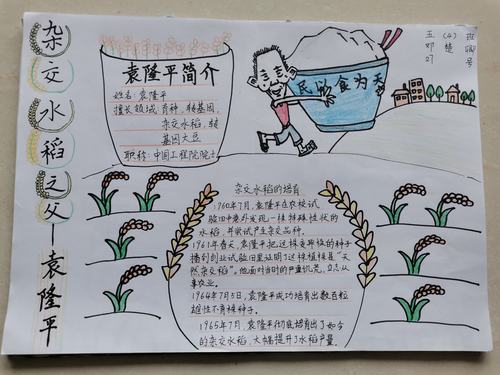 杂交水稻之父—袁隆平
袁隆平简介
姓名：袁隆平
擅长领域：育种、转基因、
杂交水稻、转
基因大豆
职称：中国工程院院士
民以食为天
五(4)班
邓楚
27号
杂交水稻的培育
1960年7月，袁隆平在农校试
验田中意外发现一株特殊性状的
水稻，并尝试产生杂交品种。
1961年春天，袁隆平把这株变异株的种子
播到创业试验田里证明了这株植株是“天
然杂交稻”。他面对当时的严重饥荒，立志从
事农业。
1964年7月5日，袁隆平成功培育出数百粒
雄性不育株种子。
1965年7月，袁隆平彻底培育出了如今
的杂交水稻，大幅提升了水稻产量。